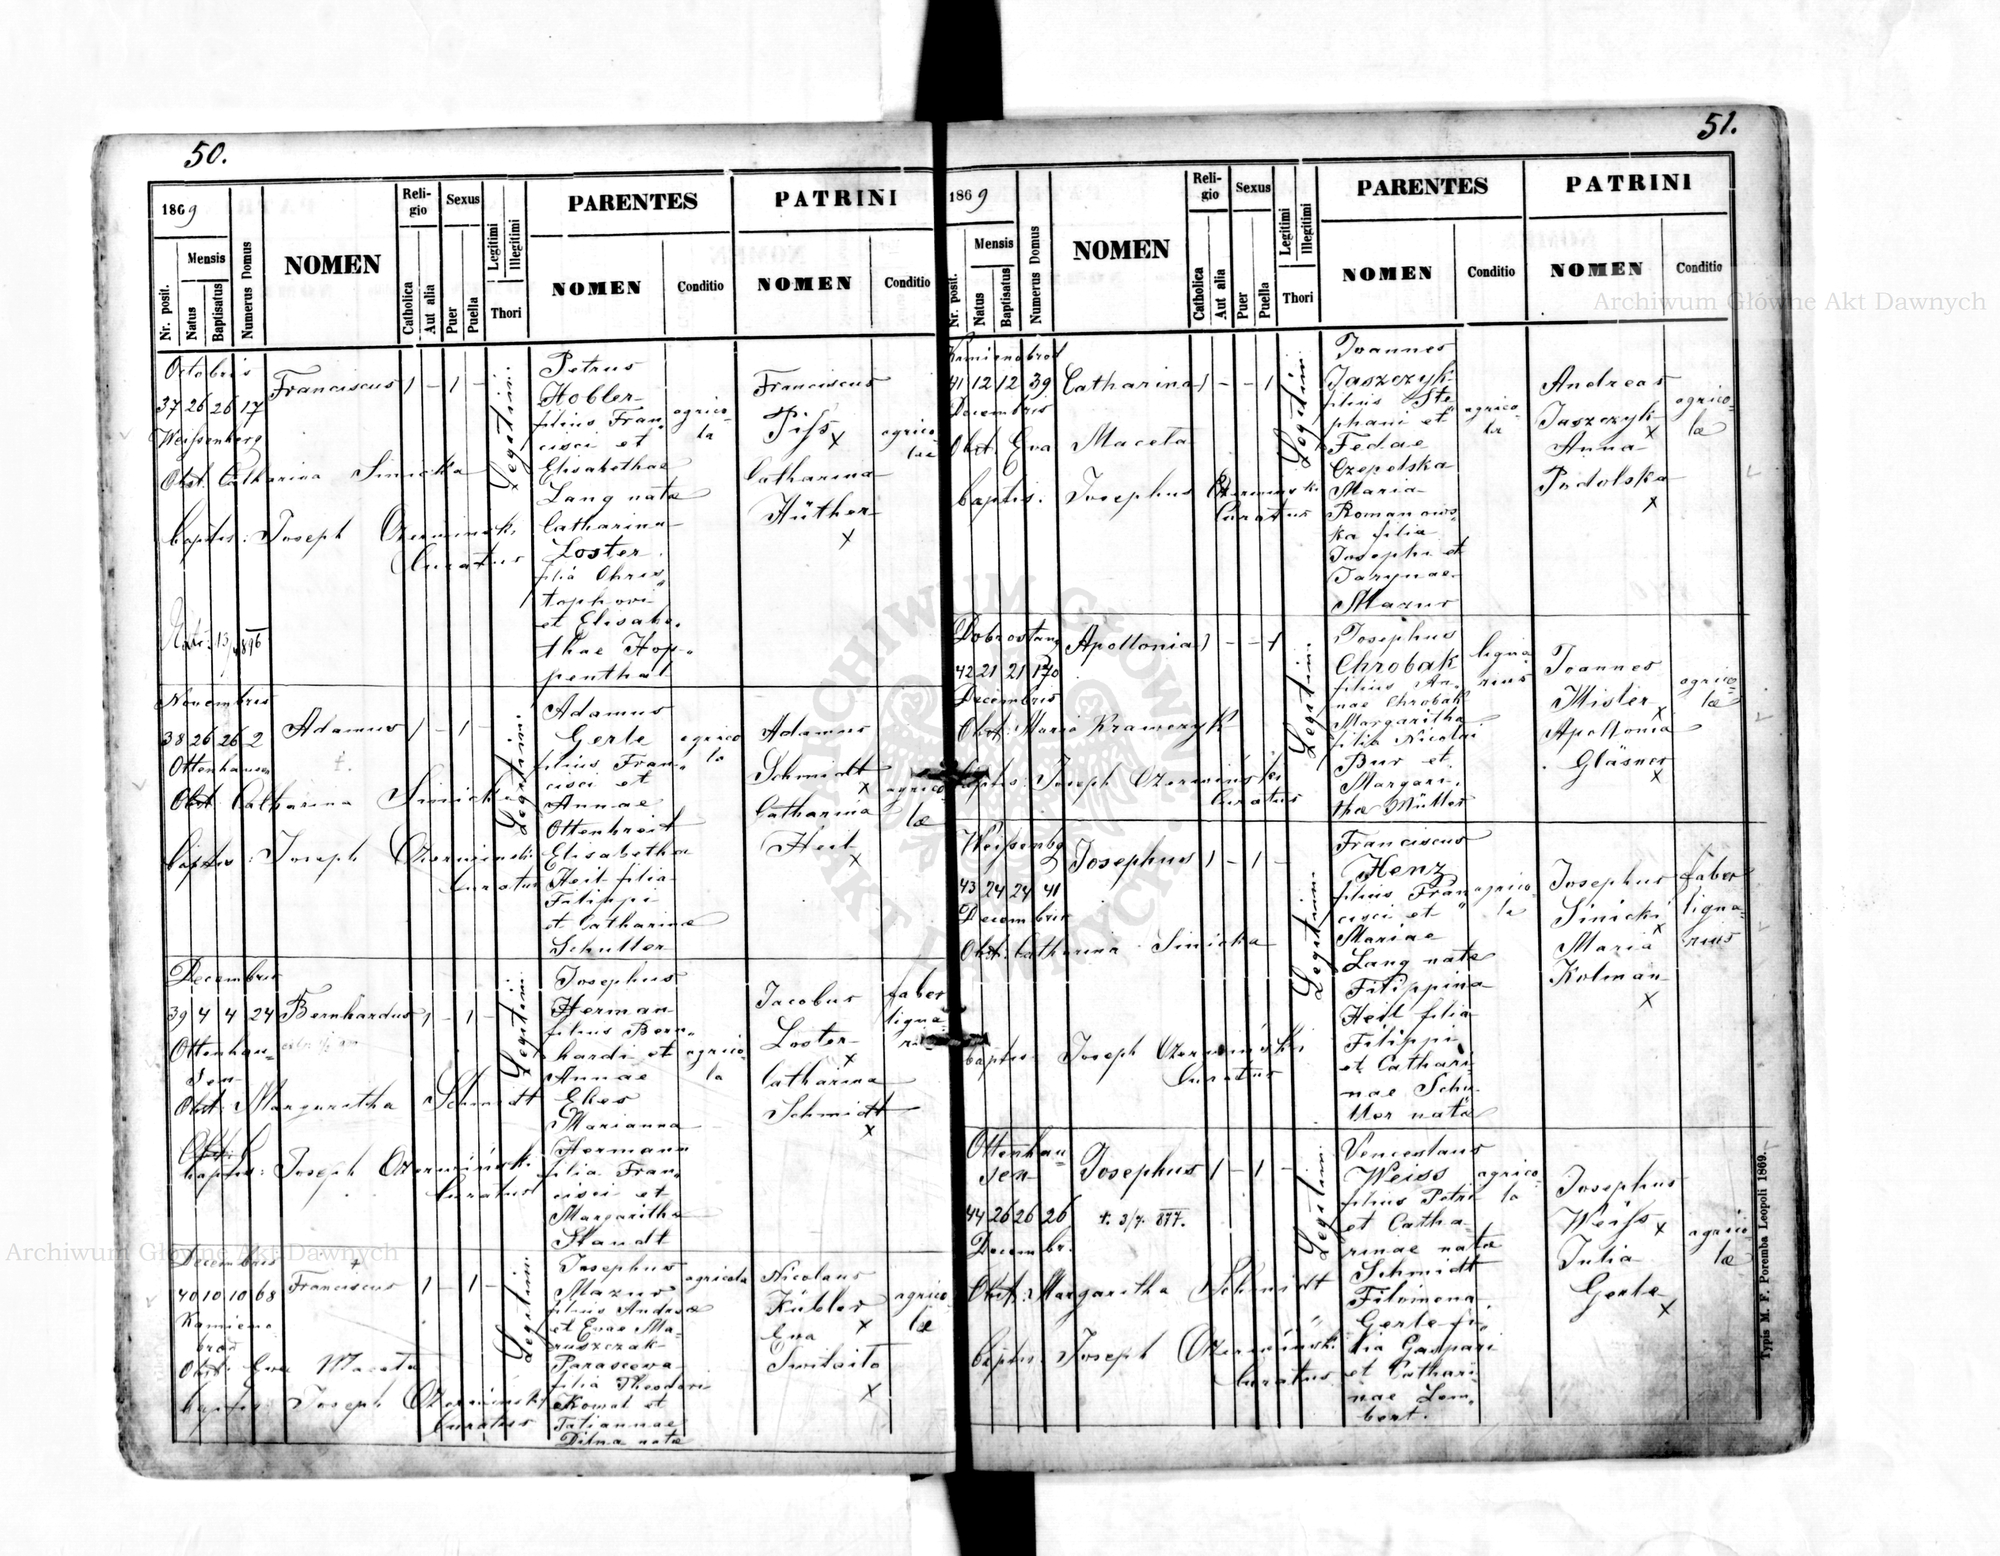 50.
1869
Mensis
Nr. posit.
Natus
Baptisatus
Numerus Domus
NOMEN
Religio
Catholica
Aut alia
Sexus
Puer
Puella
Legitimi
Illegitimi
Thori
PARENTES
NOMEN
Conditio
PATRINI
NOMEN
Conditio
Octobris
37 26 26 17
Weissenberg
Franciscus 1 - 1 -
Obst. Catharina Sinicka
bapts: Joseph Czerminski
Curatus
Legitim.
Petrus
Hobler
filius Fran„
cisci et
Elisabethae
Lang natae
Catharina
Loster
filia Chris„
tophori
et Elisabe„
thae Hop„
penthal
agrico„
la
Franciscus
Piss x
Catharina
Hüther
x
agrico„
lae
Novembris
38 26 26 2
Ottenhausen
Adamus 1 - 1 -
†.
Obst Catharina Sinicka
baptis: Joseph Czerminski
Curatus
Legitim.
Adamus
Gerle
filius Fran„
cisci et
Annae
Ottenbreit
Elisabetha
Heil filia
Filippi
et Catharinae
Schutter
agrico
la
Adamus
Schmidt
x
Catharina
Heil
x
agrico
lae
Decembris
39 4 4 24
Ottenhau„
sen
Bernhardus 1 - 1 -
Obst. Margaritha Schmidt
baptis: Joseph Czermiński
Curatus
Legitim.
Josephus
Herman
filius Bern„
hardi et
Annae
Ebes
Marianna
Hermann
filia Fran„
cisci et
Margaritha
Staudt
agrico„
la
Jacobus
Loster
x
Catharina
Schmidt
x
faber
ligna
Decembris
40 10 10 68
Kamieno
brod
†
Franciscus 1 - 1 -
Obst. Eva Maceta
baptis: Joseph Czerminski
Curatus
Legitim.
Josephus
Mazur
filius Andreae
et Evae Ma„
ruszczak
Parascewa
filia Theodori
Kowal et
Tatiannae
natae
agricola
Nicolaus
Kübler
x
Eva
x
agrico„
lae
51.
1869
Mensis
Nr. posit.
Natus
Baptisatus
Numerus Domus
NOMEN
Religio
Catholica
Aut alia
Sexus
Puer
Puella
Legitimi
Illegitimi
Thori
PARENTES
NOMEN
Conditio
PATRINI
NOMEN
Conditio
Kamienobrod
41 12 12 39
Decembris
Catharina 1 - - 1
Obst. Eva Maceta
baptis. Josephus Czerminski
Curatus
Legitim.
Joannes
Jaszczyk
filius Ste„
phani et
Fedae
Czepelska
Maria
Romanows„
ka filia
Josephi et
Jarynae
Mazur
agrico„
la
Andreas
Jaszczyk
x
Anna
Podolska
x
agrico„
lae
Dobrostany
42 21 21 170
Decembris
Apollonia 1 - - 1
Obst: Maria Krawczyk
baptis: Joseph Czermiński
Curatus
Legitim.
Josephus
Chrobak
filius An„
nae Chrobak
Margaritha
filia Nicolai
Bur et
Margari„
thae Müller
ligna„
rius
Joannes
Mister
x
Apollonia
Gläsner
x
agrico„
lae
Weissenbg
43 24 24 41
Decembris
Josephus 1 - 1 -
Obst: Catharina Sinicka
baptis: Joseph Czermiński
Curatus
Legitim.
Franciscus
Henz
filius Fran„
cisci et
Mariae
Lang natae
Filippina
Heil filia
Filippi
et Cathari
nae Schu
tter natae
agrico„
la
Josephus
Sinicki
x
Maria
Kolman
x
faber
ligna„
rius
Ottenhau„
sen
44 26 26 26
Decembr.
Josephus 1 - 1 -
†. 3/7. 877.
Obst: Margaritha Schmidt
baptis. Joseph Czerminski
Curatus
Legitim.
Venceslaus
Weiss
filius Petri
et Catha„
rinae natae
Schmidt
Filomena
Gerle fi„
lia Gaspari
et Cathari„
nae Lam„
bert.
agrico„
la
Josephus
Weiss x
Julia
Gerle
x
agrico
lae
Typis M. F. Poremba Leopoli 1869.
Archiwum Główne Akt Dawnych
Archiwum Główne Akt Dawnych
ARCHIWUM GŁÓWNE AKT DAWNYCH